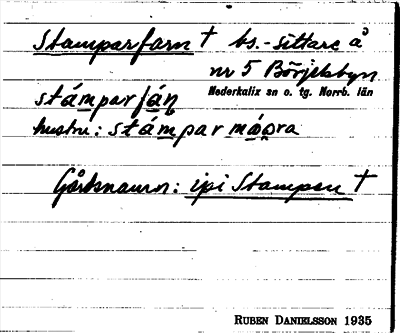 Stamparfarn † bs.-sittare å
nr 5 Börjelsbyn
Nederkalix sn o. tg. Norrb. län
stámparfán
hustru: stámparmóora
Gårdsnamn: ipi Stampen †
RUBEN DANIELSSON 1935